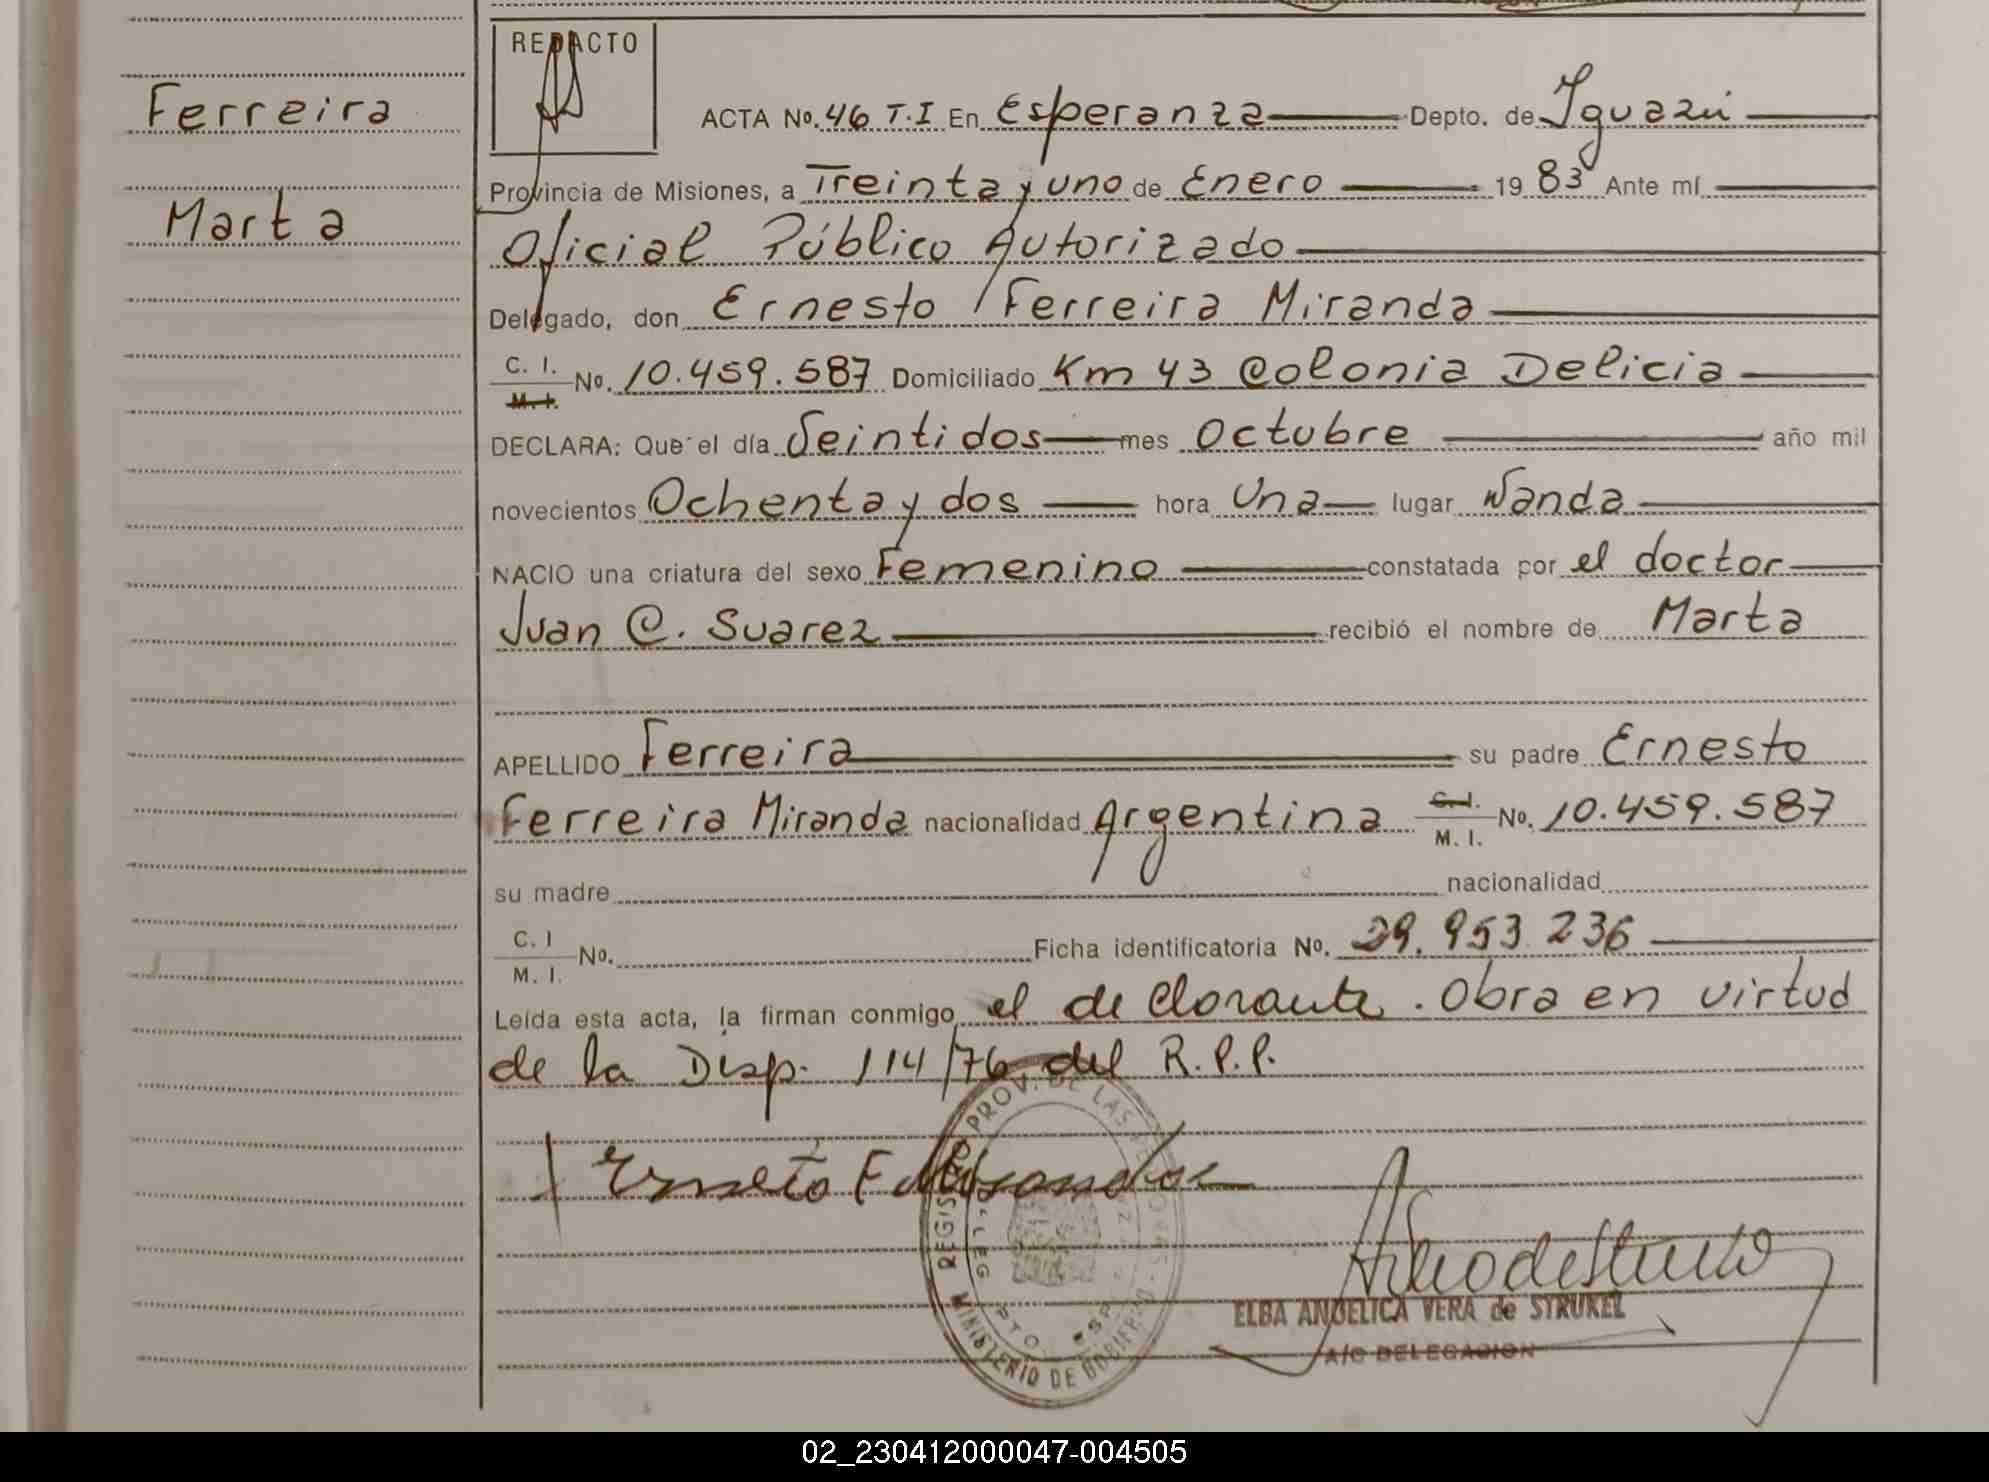 Ferreira
Marta
REDACTO
ACTA No. 46 T.I En Esperanza Depto. de Iguazú
Provincia de Misiones, a Treinta y uno de Enero 19 83 Ante mí
Oficial Público Autorizado
Delegado, don Ernesto Ferreira Miranda
C. I.
M. I.
No. 10.459.587 Domiciliado Km 43 Colonia Delicia
DECLARA: Que el día Veintidos mes Octubre año mil
novecientos Ochenta y dos hora Una lugar Wanda
NACIO una criatura del sexo Femenino constatada por el doctor
Juan C. Suarez recibió el nombre de Marta
APELLIDO Ferreira su padre Ernesto
Ferreira Miranda nacionalidad Argentina C. I. M. I. No. 10.459.587
su madre nacionalidad
C. I
M. I.
No. Ficha identificatoria No. 29.953.236
Leída esta acta, la firman conmigo el declarante. Obra en virtud
de la Disp. 114/76 del R.P.P.
PROV. DE LAS MISIONES
MINISTERIO DE GOBIERNO
Ernesto F
ELBA ANGELICA VERA de STRUKEL
A/C DELEGACION
02_230412000047-004505